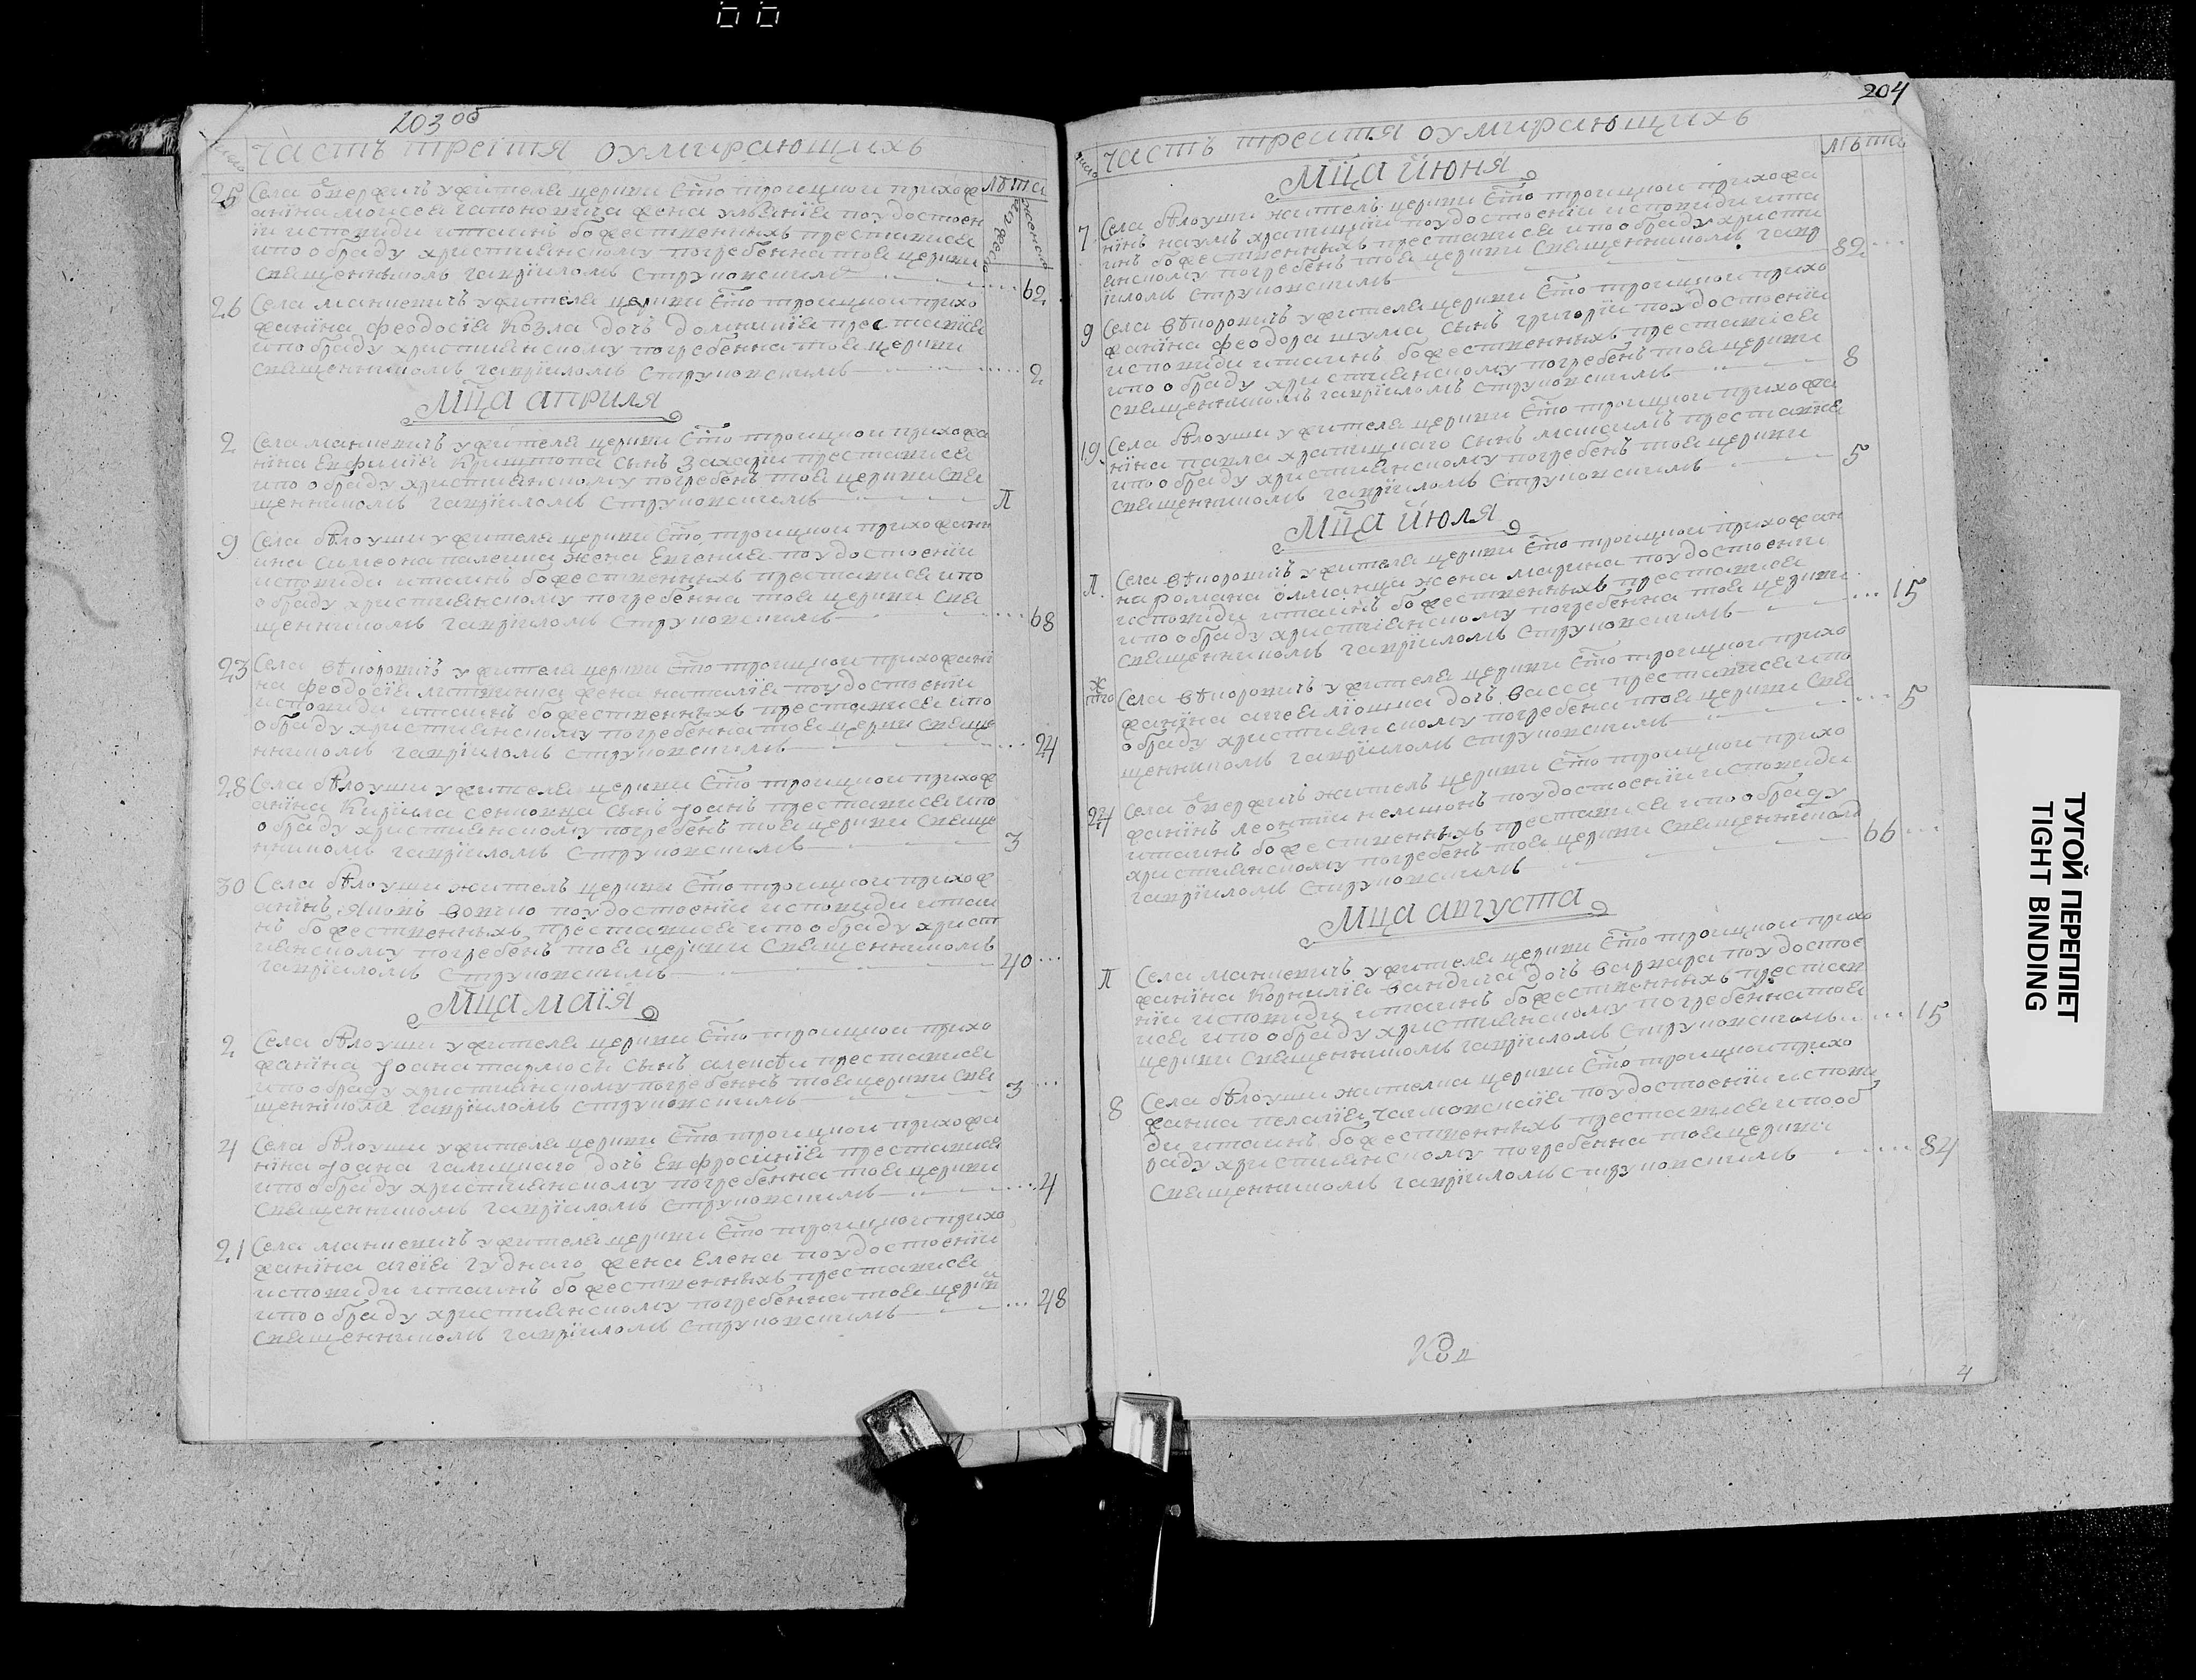 203 об
Часть третия оумирающихъ
число
лѣта
мужеска
женска
25 Села Оверфичъ ужителя церкви Сто троицкой прихож
анина моисея гапоновича жена улвяния поудостоен
ии исповиди итаинъ божественныхъ преставися
ипо обряду християнскому погребенна тоя церкви
священникомъ гавриломъ Струковскимъ 62
26 Села маниевичъ ужителя церкви Сто троицкой прихо
жанина феодосия Козла дочь домникия преставися
ипо обряду християнскому погребенна тоя церкви
священникомъ гавриломъ Струковскимъ 2
Мца априля
2 Села маниевичъ ужителя церкви Сто троицкой прихожа
нина Евфимия Криштопа сынъ Захарий преставися
ипо обряду християнскому погребенъ тоя церкви свя
щенникомъ гавриломъ Струковскимъ л
9 Села бѣлоуши ужителя церкви Сто троицкой прихожан
ина Симеона палешка жена Евгения поудостоении
исповиди итаинъ божественныхъ преставися ипо
обряду християнскому погребенна тоя церкви свя
щенникомъ гавриломъ Струковскимъ 68
23 Села вѣкоровичъ ужителя церкви Сто троицкой прихожани
на феодосия литвинка жена наталия поудостоении
исповиди итаинъ божественныхъ преставися ипо
обряду християнскому погребенна тоя церкви свяще
нникомъ гавриломъ Струковскимъ 24
28 Села бѣлоуши ужителя церкви Сто троицкой прихож
анина Кирила Сенковца сынъ Iоанъ преставися ипо
обряду християнскому погребенъ тоя церкви свяще
нникомъ гавриломъ Струковскимъ 3
30 Села бѣлоуши житель церкви Сто троицкой прихож
анинъ Яковъ вовчко поудостоении исповиди итаи
нъ божественныхъ преставися ипо обряду христ
иянскому погребенъ тоя церкви священникомъ
гавриломъ Струковскимъ 40
Мца маия
2 Села бѣлоуши ужителя церкви Сто троицкой прихо
жанина Iоана тармоси сынъ алексѣй преставися
ипо обряду християнскому погребеннъ тоя церкви свя
щенникомъ гавриломъ Струковскимъ 3
4 Села бѣлоуши ужителя церкви Сто троицкой прихожа
нина Iоана галицкаго дочь Евфросиния преставися
ипо обряду християнскому погребенна тоя церкви
священникомъ гавриломъ Струковскимъ 4
21 Села маниевичъ ужителя церкви Сто троицкой прихо
жанина агея гуднаго жена Елена поудостоении
исповиди итаинъ божественныхъ преставися
ипо обряду християнскому погребенна тоя церкви
священникомъ гавриломъ Струковскимъ 48
204
Часть третия оумирающихъ
число
лѣта
Мца июня
7 Села бѣлоуши житель церкви Сто троицкой прихожа
нинъ наумъ храпицкий поудостоении исповиди ита
инъ божественныхъ преставися ипо обряду християн
анскому погребенъ тоя церкви священникомъ гавр
иломъ Струковскимъ 82
9 Села вѣкоровичъ ужителя церкви Сто троицкой прихо
жанина феодора шума сынъ григорий поудостоении
исповиди итаинъ божественныхъ преставися
ипо обряду християнскому погребенъ тоя церкви
священникомъ гавриломъ Струковскимъ 8
19 Села бѣлоуши ужителя церкви Сто троицкой прихожа
нина павла храпицкаго сынъ максимъ преставися
ипо обряду християнскому погребенъ тоя церкви
священникомъ гавриломъ Струковскимъ 5
Мца июля
л Села вѣкоровичъ ужителя церкви Сто троицкой прихожан
на романа жена марина поудостоении
исповиди итаинъ божественныхъ преставися
ипо обряду християнскому погребенна тоя церкви
священникомъ гавриломъ Струковскимъ 15
тго Села вѣкоровичъ ужителя церкви Сто троицкой прихо
жанина дочь васса преставися ипо
обряду християнскому погребена тоя церкви свя
щенникомъ гавриломъ Струковскимъ 5
24 Села Оверфичъ житель церкви Сто троицкой прихо
жанинъ леонтий поудостоении исповиди
итаинъ божественныхъ преставися ипо обряду
християнскому погребенъ тоя церкви священникомъ
гавриломъ Струковскимъ 66
Мца августа
л Села маниевичъ ужителя церкви Сто троицкой прихо
жанина Корнилия вандича дочь варвара поудостое
нии исповиди итаинъ божественныхъ престав
ися ипо обряду християнскому погребенна тоя
церкви священникомъ гавриломъ Струковскимъ 15
8 Села бѣлоуши жителка церкви Сто троицкой прихо
жанка пелагия поудостоении испови
ди итаинъ божественныхъ преставися ипо об
ряду християнскому погребенна тоя церкви
священникомъ гавриломъ Струковскимъ 84
4
ТУГОЙ ПЕРЕПЛЕТ
TIGHT BINDING